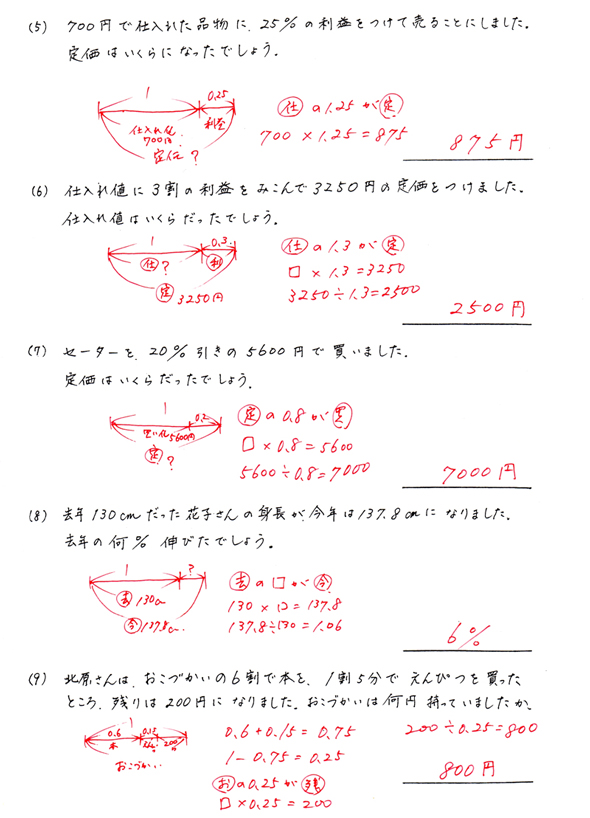 (5) 700円で仕入れた品物に、25%の利益をつけて売ることにしました。
定価はいくらになったでしょう。
1 0.25
仕入れ値 700円 利益
定価?
仕の1.25が定
700×1.25=875
875円
(6) 仕入れ値に3割の利益をみこんで3250円の定価をつけました。
仕入れ値はいくらだったでしょう。
1 0.3
仕? 利
定 3250円
仕の1.3が定
□×1.3=3250
3250÷1.3=2500
2500円
(7) セーターを、20%引きの5600円で買いました。
定価はいくらだったでしょう。
1 0.2
買い値5600円
定?
定の0.8が買
□×0.8=5600
5600÷0.8=7000
7000円
(8) 去年130cmだった花子さんの身長が、今年は137.8cmになりました。
去年の何% 伸びたでしょう。
1 ?
去130cm
今137.8cm
去の□が今
130×□=137.8
137.8÷130=1.06
6%
(9) 北原さんは、おこづかいの6割で本を、1割5分でえんぴつを買った
ところ、残りは200円になりました。おこづかいは何円持っていましたか。
1
0.6 0.15
本 200円
おこづかい
0.6+0.15=0.75
1-0.75=0.25
おの0.25が残
□×0.25=200
200÷0.25=800
800円